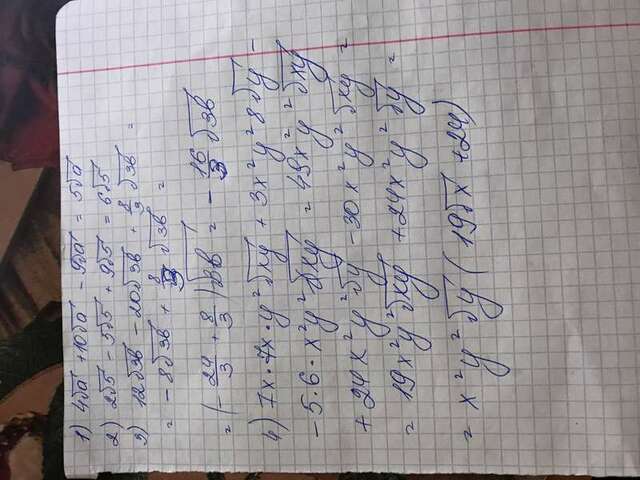 1) 4√a + 10√a - 9√a = 5√a
2) 2√5 - 5√5 + 9√5 = 6√5
3) 12√3b - 20√3b + 8/3 √3b =
= -8√3b + 8/3 √3b =
= (- 24/3 + 8/3) √3b = - 16/3 √3b
4) 7x · 7x · y² √xy + 3x² y² 8 √y -
- 5 · 6 · x² y² √xy = 49x² y² √xy
+ 24x² y² √y - 30x² y² √xy =
= 19x² y² √xy + 24x² y² √y =
= x² y² √y (19√x + 24)